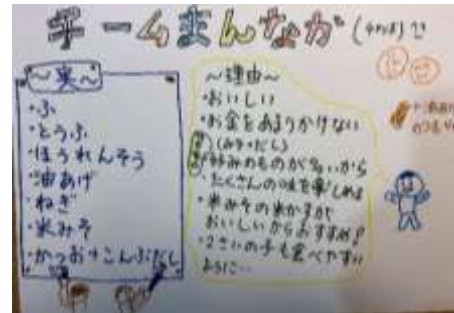 チームまんなか
～実～
・ふ
・とうふ
・ほうれんそう
・油あげ
・ねぎ
・米みそ
・かつお+こんぶだし
～理由～
・おいしい
・お金をあまりかけない
(みそ・だし)
好みのものが多いから
・たくさんの味を楽しめる
・米みその米かすが
おいしいからおすすめ!
・2さいの子も食べやすい
ように…